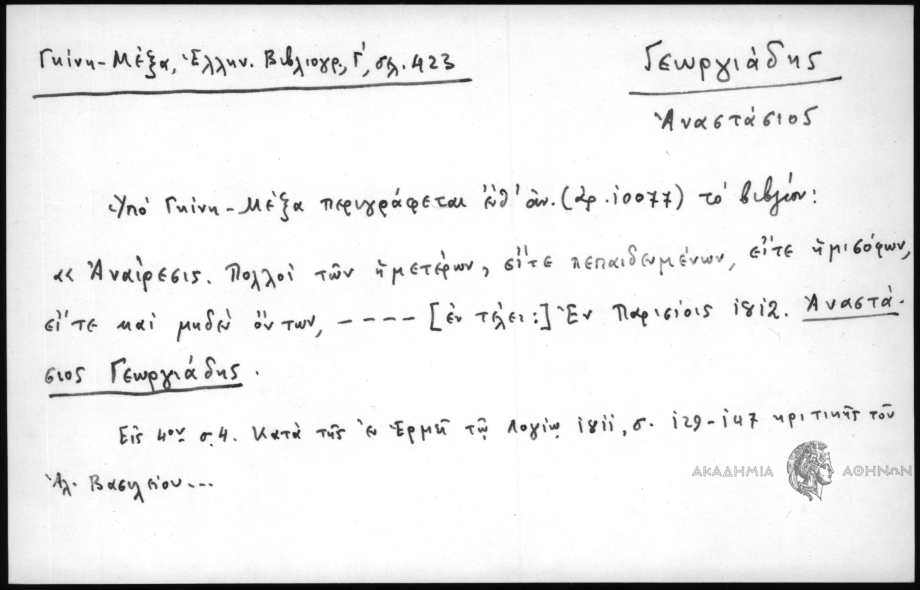 Γκίνη-Μέξα, Ἑλλην. Βιβλιογρ., Γ', σελ. 423
Γεωργιάδης
Ἀναστάσιος
Ὑπό Γκίνη-Μέξα περιγράφεται ἐνθ' ἀν. (ἀρ. 10077) τό βιβλίον:
«Ἀναίρεσις. Πολλοί τῶν ἡμετέρων, εἴτε πεπαιδευμένων, εἴτε ἡμισόφων,
εἴτε καί μηδέν ὄντων, ---- [ἐν τέλει:] Ἐν Παρισίοις 1812. Ἀναστά-
σιος Γεωργιάδης.
Εἰς 4ον σ. 4. Κατά τῆς ἐν Ἑρμῇ τῷ Λογίῳ 1811, σ. 129-147 κριτικῆς τοῦ
Ἀλ. Βασιλείου...
ΑΚΑΔΗΜΙΑ ΑΘΗΝΩΝ